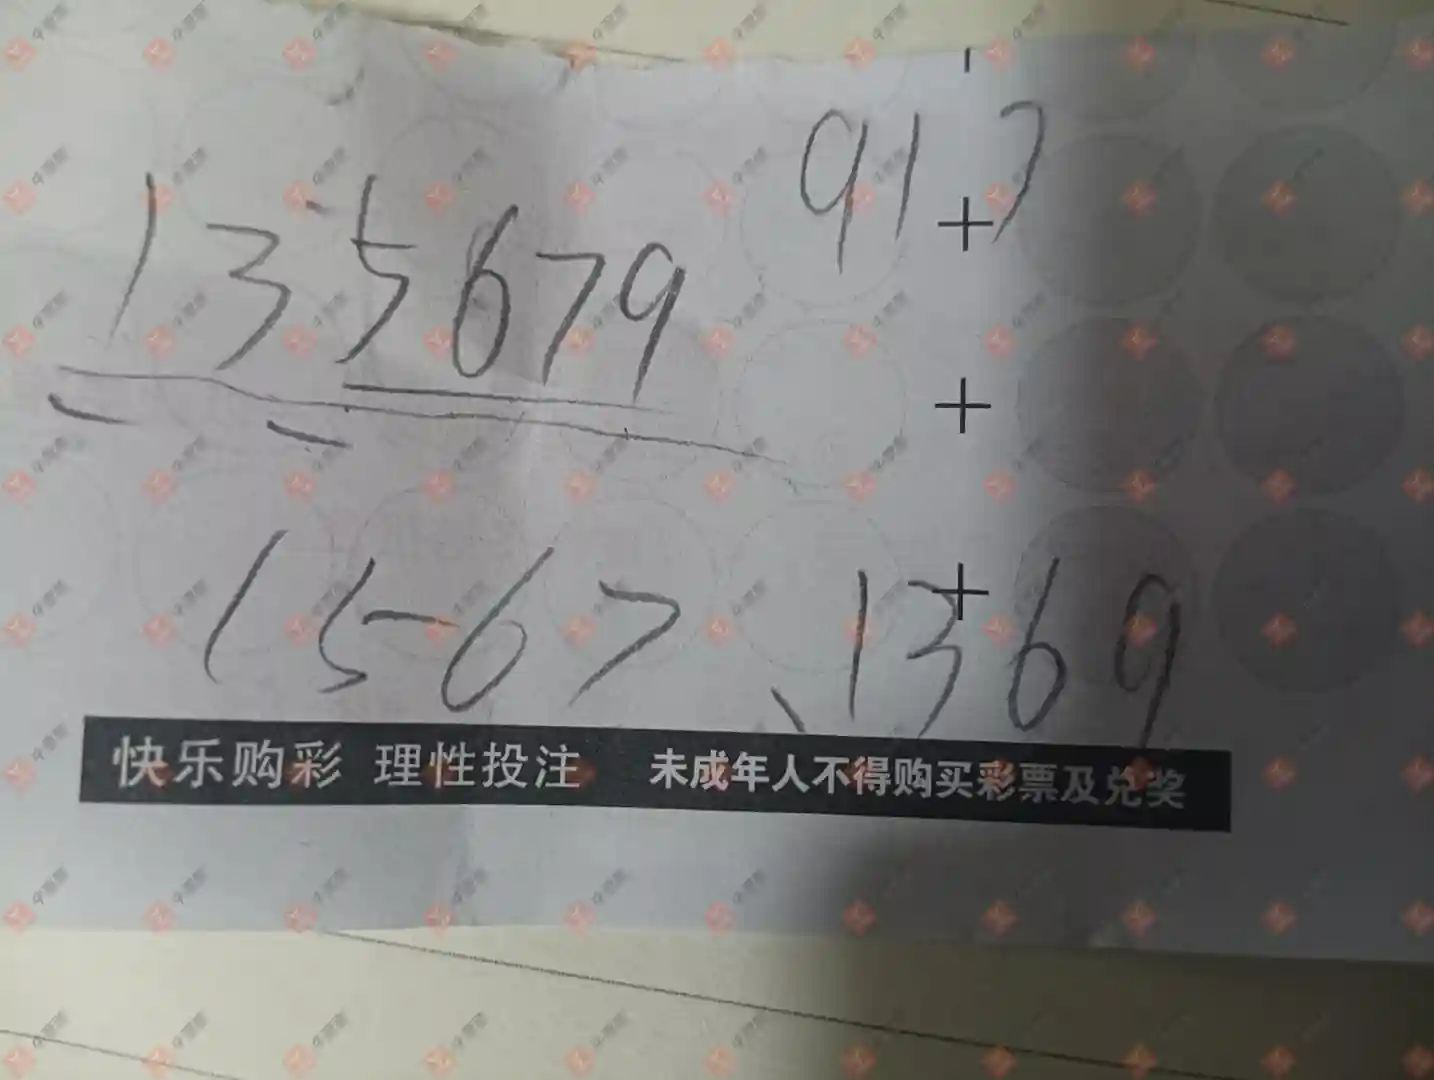 917
135679
1567、1369
快乐购彩 理性投注 未成年人不得购买彩票及兑奖